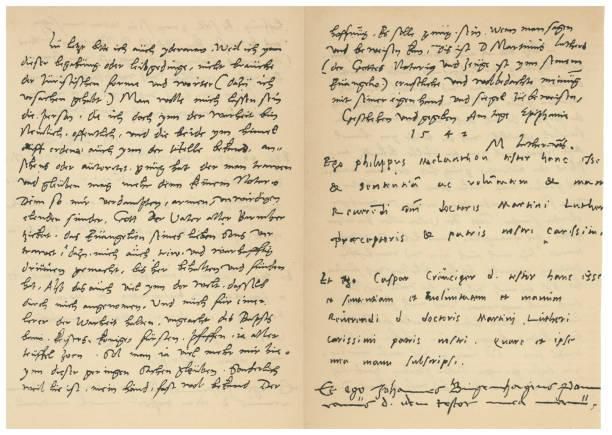 Zu letzt bitte ich auch yderman, Weil ich ynn
dieser begabung oder leibgedinge, nicht brauche
der Juristischen forma und wörter (dazu ich
ursachen gehabt) Man wolle mich lassen sein
die person, die ich doch ynn der warheit bin
Nemlich, offentlich, und die beide ym himel
auff erden auch ynn der Helle bekand, an-
sehens oder autoritet, gnug hat der man trawen
und gleuben mag mehr denn keinem Notario
Denn so mir verdampten, armen, unwirdigen
elenden sunder, Gott der Vater aller barmher
tzikeit, das Euangelion seines lieben Sons ver
trawet, dazu mich auch trew und warhafftig
drinnen gemacht, bis her behalten und funden
hat, Also das auch viel ynn der welt, dasselb
durch mich angenomen, Und mich fur einen
lerer der Warheit halten, ungeacht des Bapsts
bann, Keisers, konige, fursten, pfaffen, ia aller
teuffel zorn, Sol man ia viel mehr mir hie
ynn dieser geringen sachen gleuben, Sonderlich
weil hie ist, mein hand, fast wol bekand Der
hoffnung, Es solle gnug sein, Wenn man sagen
und beweisen kan, Dis ist D Martinus Luthers
(der Gottes Notarius und zeuge ist ynn seinem
Euangelio) ernstliche und wolbedachte meinung
mit seiner eigen hand und siegel zu beweisen,
Geschehen und gegeben Am tage Epiphanie
1542
M Luther
Ego philippus Melanthon testor hanc esse
& sententiam ac voluntatem & manum
Reverendi domini doctoris Martini Lutheri
præceptoris & patris nostri carissimi.
Et ego Caspar Crüciger d. testor hanc esse
et sententiam et voluntatem et manum
Reverendi d. doctoris Martini Lutheri
carissimi patris nostri. quare et ipse
mea manu subscripsi.
Et ego Johannes Bugenhagius Pome
ranus d. idem testor mea manu